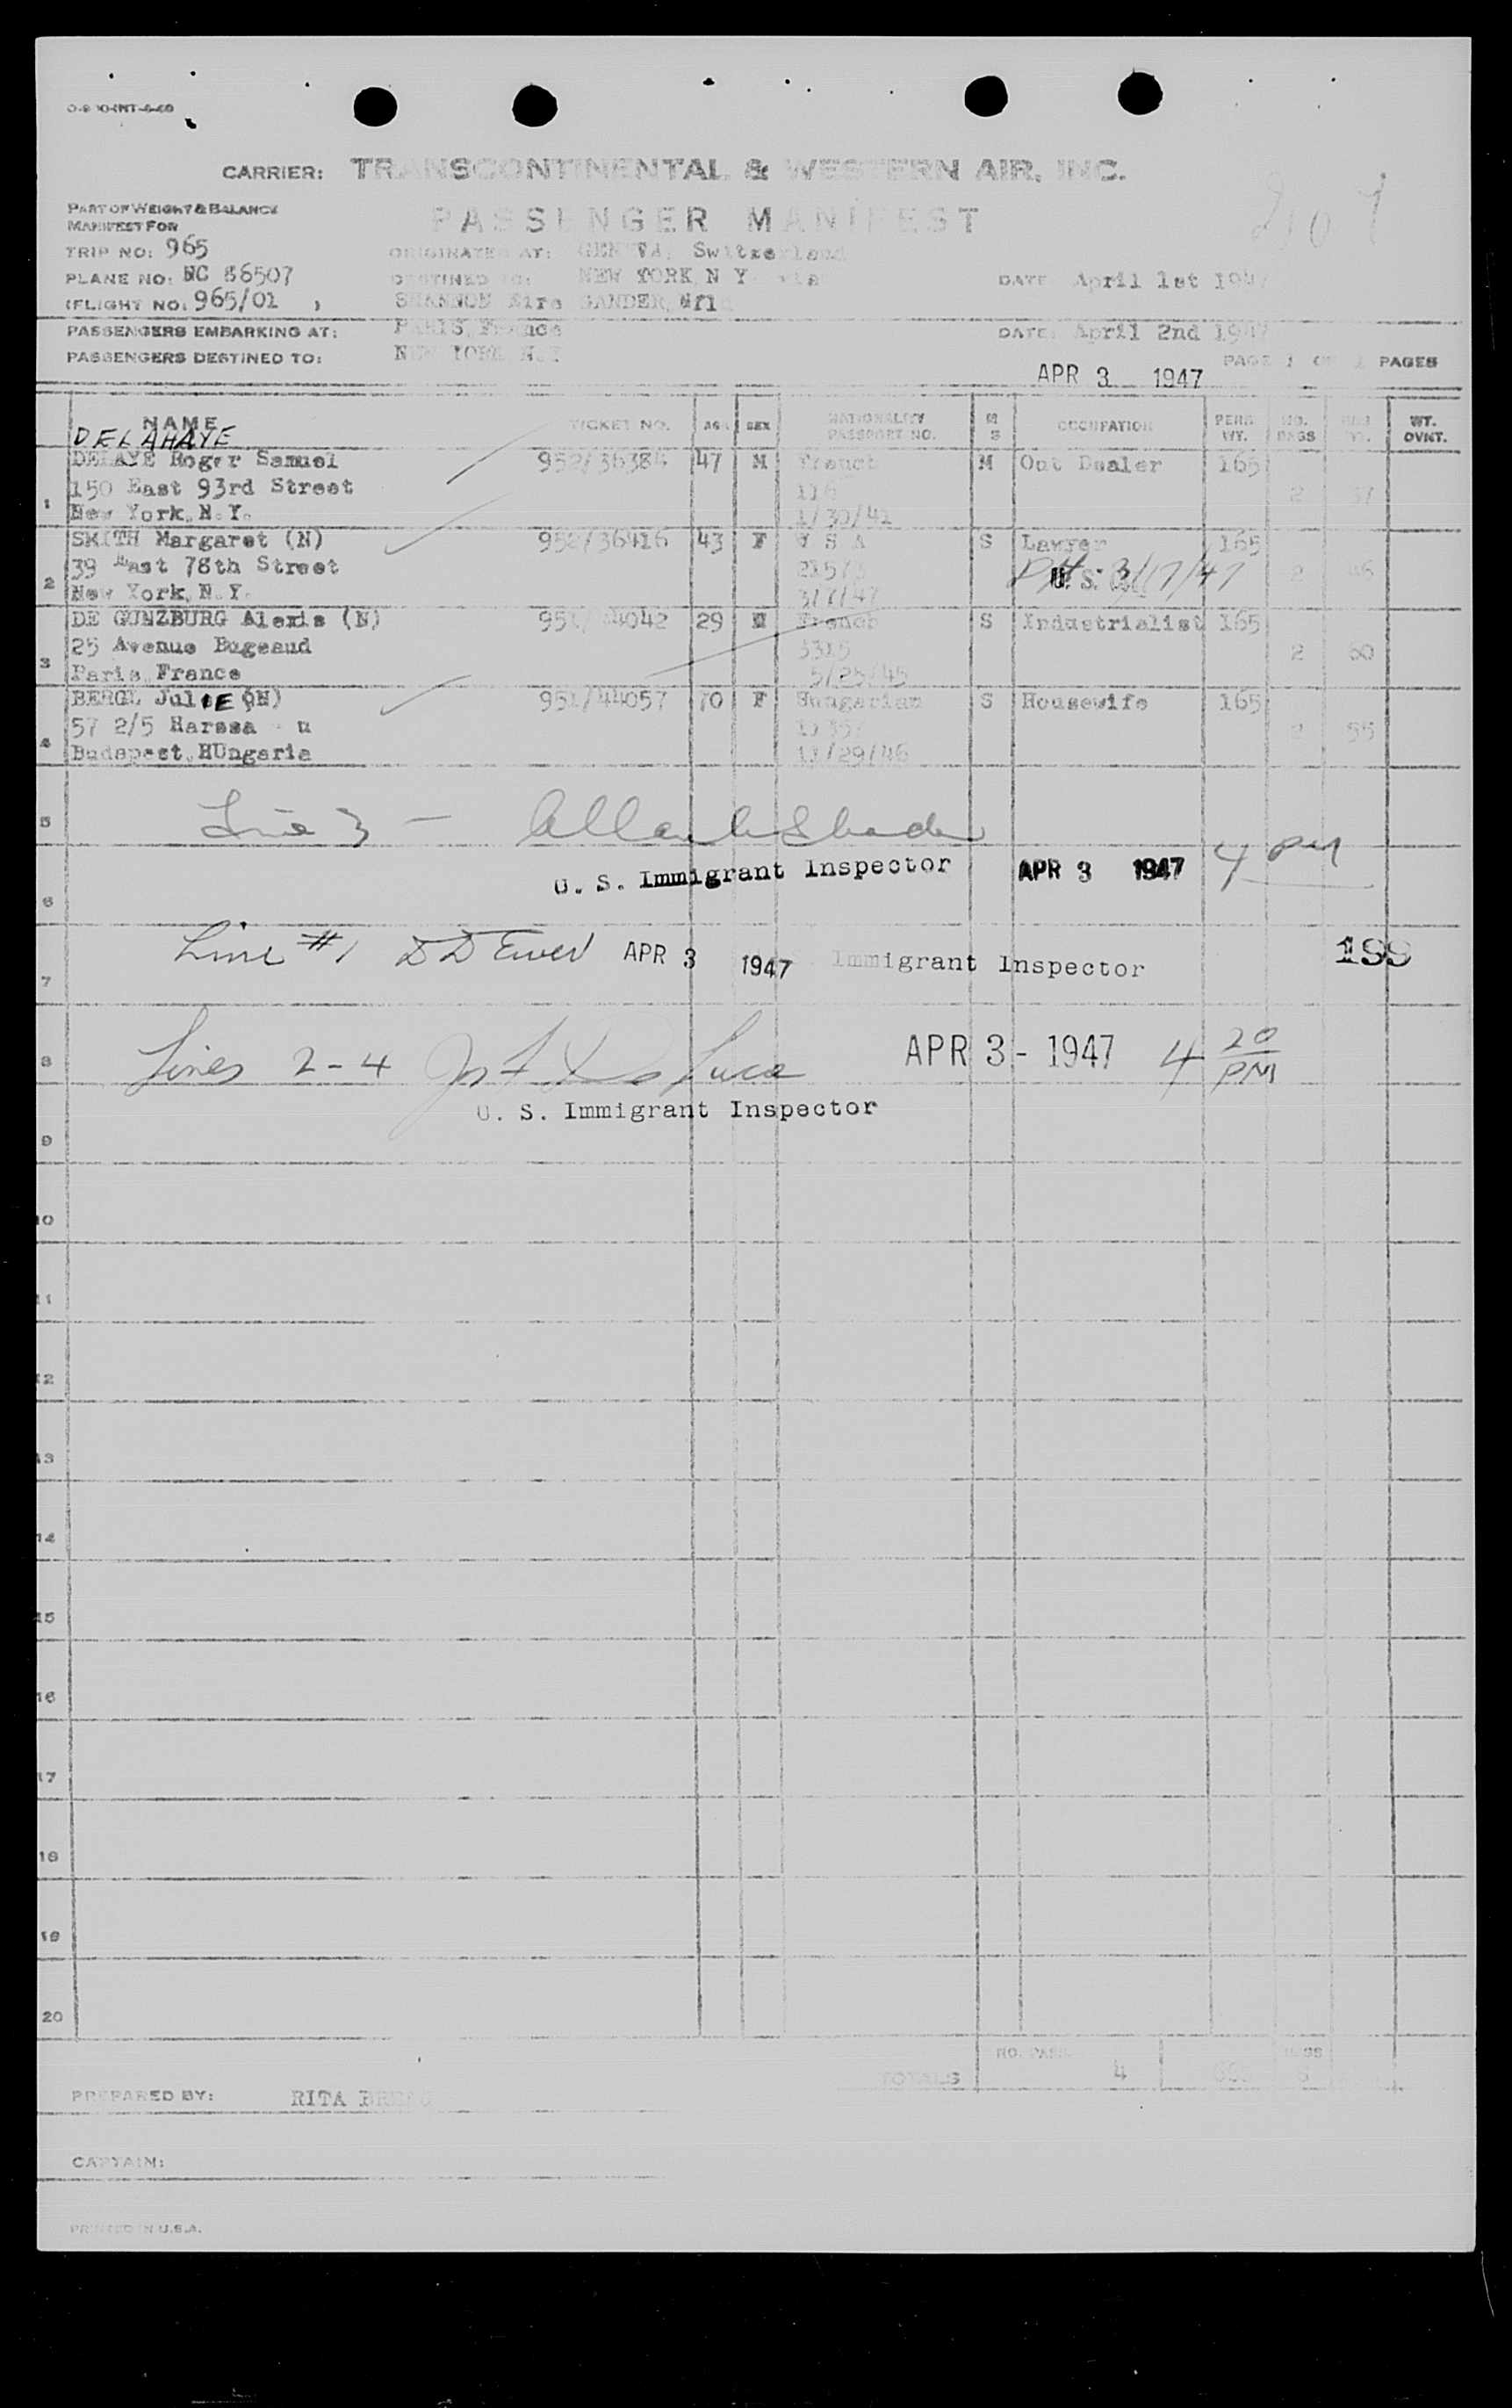 CARRIER: TRANSCONTINENTAL & WESTERN AIR, INC.
PART OF WEIGHT & BALANCE
MANIFEST FOR
PASSENGER MANIFEST
TRIP NO: 965 ORIGINATED AT: GENEVA, Switzerland
PLANE NO: NC 86507 DESTINED TO: NEW YORK N Y via DATE April 1st 1947
(FLIGHT NO: 965/01 ) SHANNON Eire GANDER, Nfld
PASSENGERS EMBARKING AT: PARIS, France DATE: April 2nd 1947
PASSENGERS DESTINED TO: NEW YORK N.Y PAGE 1 OF 1 PAGES
APR 3 1947
NAME TICKET NO. AGE SEX NATIONALITY PASSPORT NO. M S OCCUPATION PERS. WT. NO. BAGS WT. WT. OVNT.
DELAHAYE
DELAYE Roger Samuel 952/36384 47 M French M Out Dealer 165
150 East 93rd Street 116 2 37
1 New York, N.Y. 1/30/41
SMITH Margaret (N) 952/36416 43 F U S A S Lawyer 165
39 East 78th Street 2 46
U. S. 3/17/47
2 New York, N.Y. 3/7/47
DE GUNZBURG Alexis (N) 29 M French S Industrialist 165
25 Avenue Bugeaud 3315 2 60
3 Paris, France 5/25/45
BERGL JuliE (N) 951/44057 70 F Hungarian S Housewife 165
57 2/5 Harssa u 2 55
4 Budapest, HUngarie 11/29/46
5 Line 3 -
U. S. Immigrant Inspector APR 3 1947 4 PM
6
Line #1 D D Ewer APR 3 1947 Immigrant Inspector 199
7
8 Lines 2-4 APR 3 - 1947 4 20 PM
U. S. Immigrant Inspector
9
10
11
12
13
14
15
16
17
18
19
20
NO. PASS. BAGS
TOTALS 4
PREPARED BY: RITA
CAPTAIN:
PRINTED IN U.S.A.